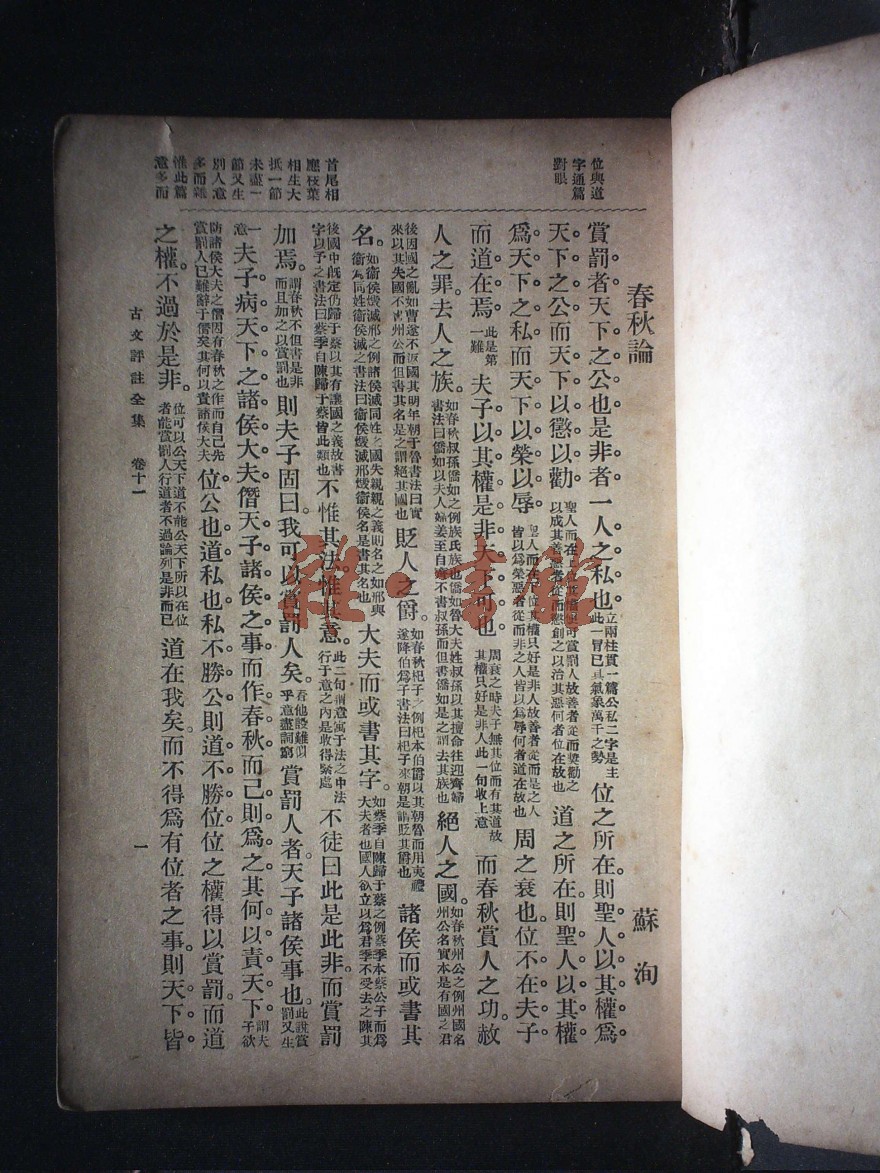 位與道
字通篇
對眼
首尾相
應枝葉
相生大
抵一節
未盡一
節又生
別人意
多而雜
惟此篇
意多而
春秋論 蘇洵
賞罰者天下之公也是非者一人之私也立兩柱貫一篇公私二字是主此一冒已具氣象萬千之勢位之所在則聖人以其權爲
天下之公而天下以懲以勸聖人而在上位其權可賞罰人故善者從而獎勸之以成其善惡者從而懲創之以治其惡何者位在故也道之所在則聖人以其權
爲天下之私而天下以榮以辱聖人而在下位其權只好是非人故善者從而是之人皆以爲榮惡者從而非之人皆以爲辱何者道在故也周之衰也位不在夫子
而道在焉此是第一難夫子以其權是非天下可也周衰之時夫子無其位而有其道故其權只好是非人此一句收上意而春秋賞人之功赦
人之罪去人之族如春秋叔孫僑如之例族氏族也僑如魯大夫姓叔孫以其擅命往迎齊婦書法曰僑如以夫人婦姜至自齊不書叔孫而但書僑如是之謂去其族也絕人之國如春秋州公之例州國名州公名實本是有國之君
後因國之亂如曹遂不返國其明年朝于魯書法曰實來以其失國不書州公而但書其名是之謂絕其國也貶人之爵如春秋杞子之例杞本伯爵以其朝魯而用夷禮遂降伯爲子書法曰杞子來朝是謂貶其爵也諸侯而或書其
名如衞侯燬滅邢之例諸侯滅同姓之國失親親之義則名之如邢與衞爲同姓衞侯滅之書法曰衞侯燬滅邢燬衞侯名是書其名也大夫而或書其字如蔡季自陳歸于蔡之例蔡季本蔡公子而爲大夫者也國人欲立以爲君季不受去之陳其
後國中旣定仍歸于蔡以其有讓國之義故書字以予之書法曰蔡季自陳歸于蔡皆此類也不惟其法惟其意此二句謂意寓于法之中法行于意之內是收得緊處不徒曰此是此非而賞罰
加焉謂春秋不但書是非而且加之以賞罰也則夫子固曰我可以賞罰人矣看他設難似乎意盡詞窮賞罰人者天子諸侯事也此說賞罰又生
一意夫子病天下之諸侯大夫僭天子諸侯之事而作春秋而己則爲之其何以責天下謂夫子欲
防諸侯大夫之僭因有春秋之作而自己先賞罰人已難辭于僭矣其何以責諸侯大夫位公也道私也私不勝公則道不勝位位之權得以賞罰而道
之權不過於是非位可以公天下道不能公天下所以在位者能賞罰人行道者不過論列是非而已道在我矣而不得爲有位者之事則天下皆
古文評註全集 卷十一 一